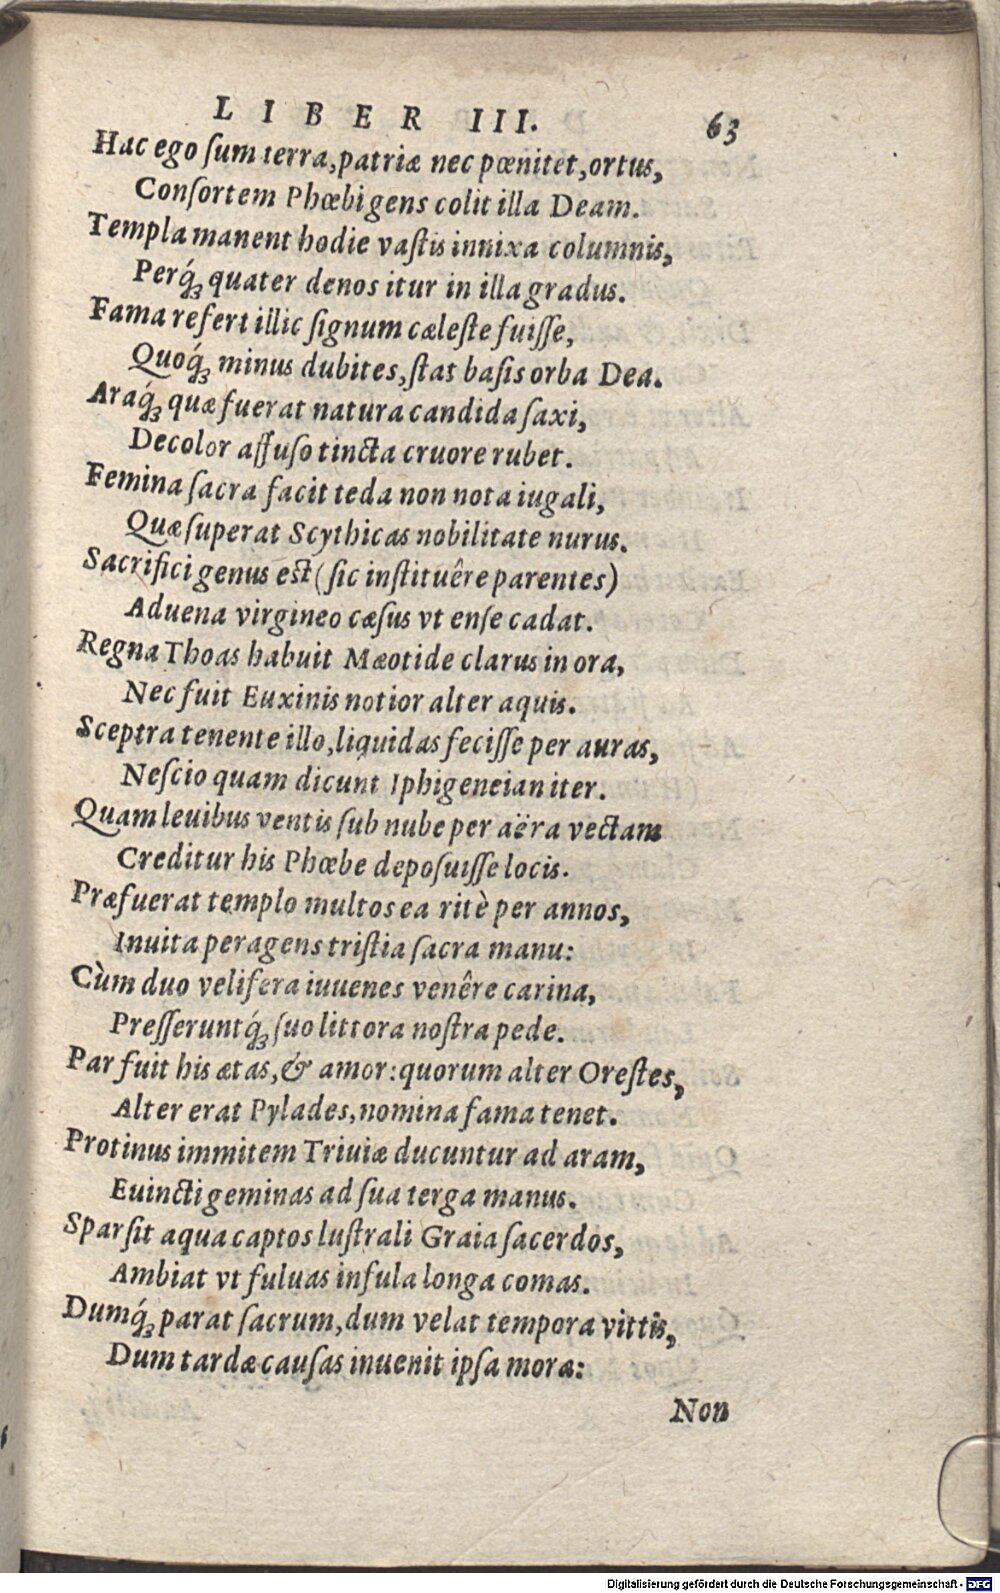 LIBER III. 63
Hac ego ſum terra, patriæ nec pœnitet, ortus,
Conſortem Phœbi gens colit illa Deam.
Templa manent hodie vaſtis innixa columnis,
Perq́ꝫ quater denos itur in illa gradus.
Fama refert illic ſignum cæleſte fuiſſe,
Quoq́ꝫ minus dubites, ſtat baſis orba Dea.
Araq́ꝫ quæ fuerat natura candida ſaxi,
Decolor affuſo tincta cruore rubet.
Femina ſacra facit teda non nota iugali,
Quæ ſuperat Scythicas nobilitate nurus.
Sacrifici genus est (ſic inſtituêre parentes)
Aduena virgineo cæſus vt enſe cadat.
Regna Thoas habuit Mæotide clarus in ora,
Nec fuit Euxinis notior alter aquis.
Sceptra tenente illo, liquidas feciſſe per auras,
Neſcio quam dicunt Iphigeneian iter.
Quam leuibus ventis ſub nube per aëra vectam
Creditur his Phœbe depoſuiſſe locis.
Præfuerat templo multos ea ritè per annos,
Inuita peragens triſtia ſacra manu:
Cùm duo velifera iuuenes venêre carina,
Preſſeruntq́ꝫ ſuo littora noſtra pede.
Par fuit his ætas, & amor: quorum alter Oreſtes,
Alter erat Pylades, nomina fama tenet.
Protinus immitem Triuiæ ducuntur ad aram,
Euincti geminas ad ſua terga manus.
Sparſit aqua captos luſtrali Graia ſacerdos,
Ambiat vt fuluas infula longa comas.
Dumq́ꝫ parat ſacrum, dum velat tempora vittis,
Dum tardæ cauſas inuenit ipſa moræ:
Non
Digitalisierung gefördert durch die Deutsche Forschungsgemeinschaft - DFG